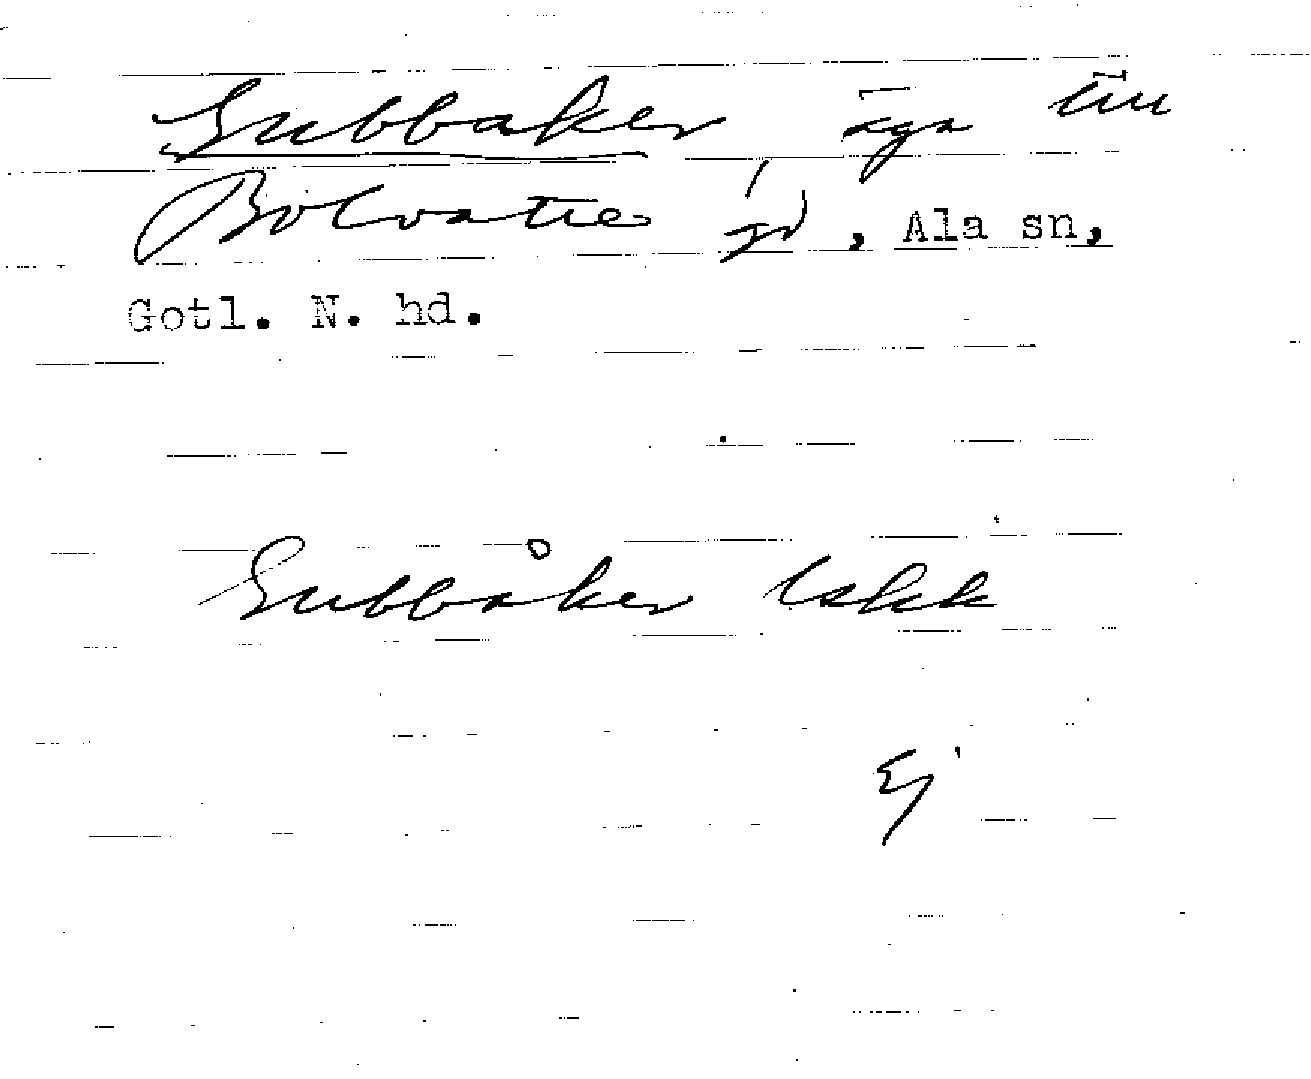 Gubbaker äga till
Bölvatte gd, Ala sn,
Gotl. N. hd.
Gubbåker Lskk
Ej